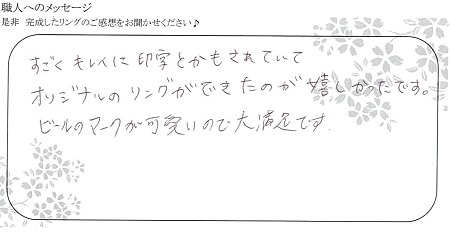 職人へのメッセージ
是非 完成したリングのご感想をお聞かせください♪
すごくキレイに印字とかもされていて
オリジナルのリングができたのが嬉しかったです。
ビールのマークが可愛いので大満足です